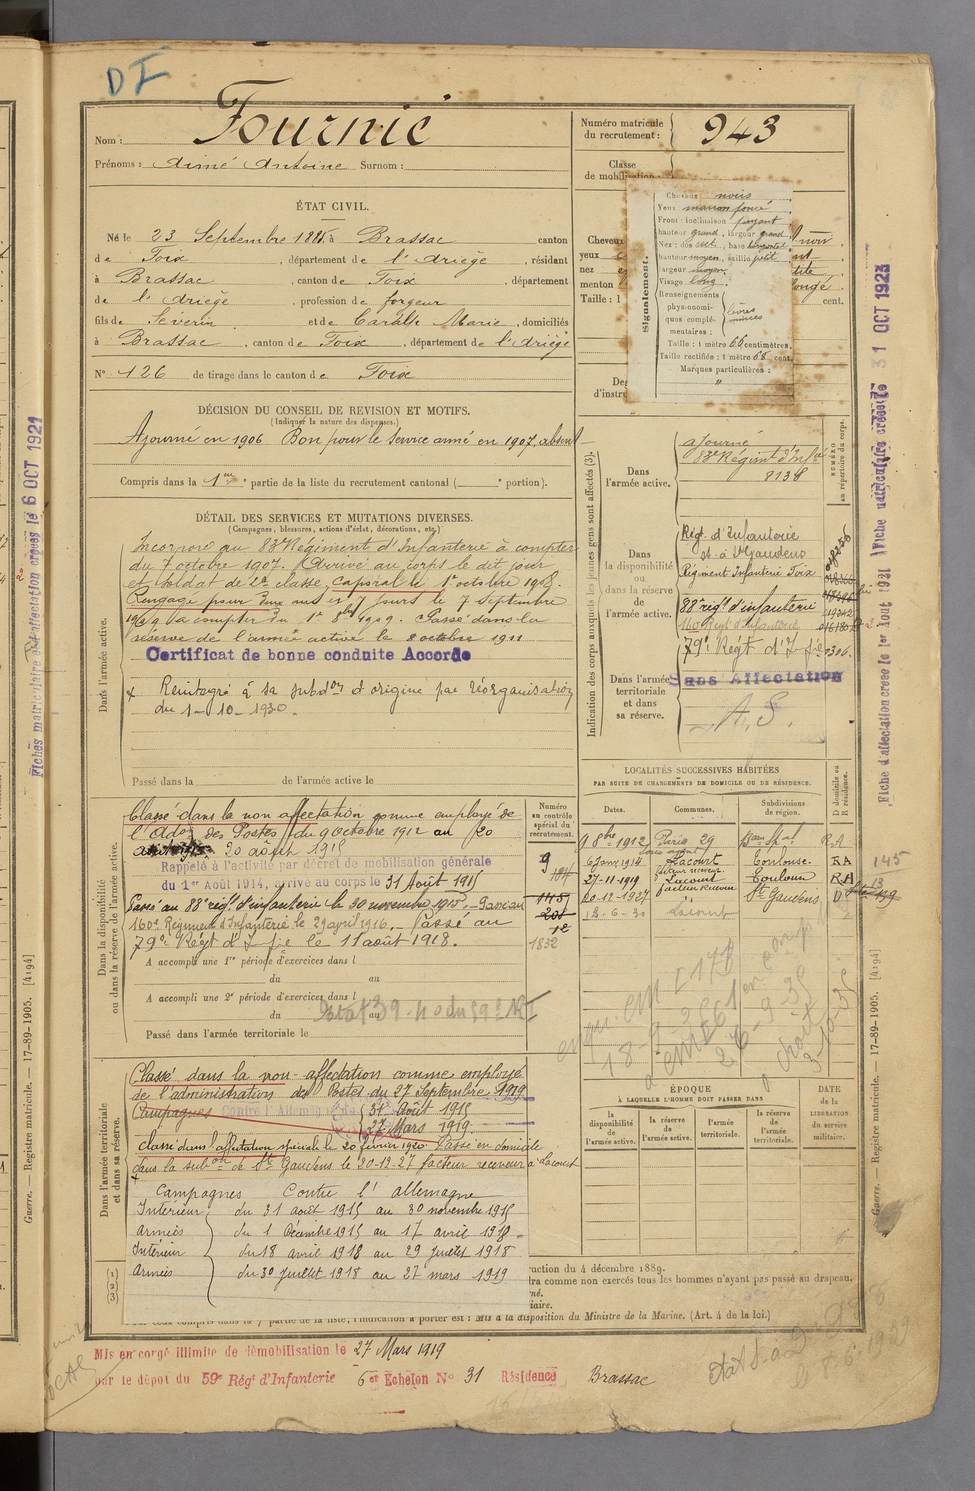 DI
Nom : Fournié
Prénoms : Aimé Antoine Surnom :
Numéro matricule du recrutement : 943
Classe de mobilisation :
ÉTAT CIVIL.
Né le 23 Septembre 1885 à Brassac canton
de Foix, département de l'Ariège, résidant
à Brassac, canton de Foix, département
de l'Ariège, profession de forgeur
fils de Séverin et de Caralp Marie, domiciliés
à Brassac, canton de Foix, département de l'Ariège
N° 126 de tirage dans le canton de Foix
Signalement.
Cheveux noirs
Yeux marron foncé
Front : inclinaison fuyant
hauteur grand, largeur grand
Nez : dos rect., base horizontal
hauteur moyen, saillie petit
largeur moyen
Visage long
Renseignements physionomiques complémentaires : lèvres minces
Taille : 1 mètre 66 centimètres.
Taille rectifiée : 1 mètre 68 cent.
Marques particulières :
"
Cheveux
yeux
nez
menton
Taille : 1
cent.
DÉCISION DU CONSEIL DE REVISION ET MOTIFS.
(Indiquer la nature des dispenses.)
Ajourné en 1906 Bon pour le service armé en 1907, absent
Compris dans la 1re partie de la liste du recrutement cantonal ( e portion).
DÉTAIL DES SERVICES ET MUTATIONS DIVERSES.
(Campagnes, blessures, actions d'éclat, décorations, etc.)
Dans l'armée active.
Incorporé au 83e Régiment d'Infanterie à compter
du 7 octobre 1907. Arrivé au corps le dit jour
et soldat de 2e classe, Caporal le 1er octobre 1908.
Rengagé pour deux ans et 7 jours le 7 Septembre
1909 à compter du 1er 8bre 1909. Passé dans la
réserve de l'armée active le 8 octobre 1911
Certificat de bonne conduite Accordé
+ Réintégré à sa subdon d'origine par réorganisation
du 1-10-1930.
Passé dans la de l'armée active le
Indication des corps auxquels les jeunes gens sont affectés (3).
NUMÉRO au répertoire du corps.
Dans l'armée active.
Ajourné
83e Régiment d'Infie
8138
Dans la disponibilité ou dans la réserve de l'armée active.
Rég. d'Infanterie
et à St Gaudens
Régiment Infanterie Foix
88e régt d'infanterie
160 Régt d'Infanterie
79e Régt d'Infie
Dans l'armée territoriale et dans sa réserve.
Sans Affectation
A.S.
LOCALITÉS SUCCESSIVES HABITÉES
PAR SUITE DE CHANGEMENTS DE DOMICILE OU DE RÉSIDENCE.
Dates. Communes. Subdivisions de région. D domicile ou R résidence.
9 8bre 1912 Paris 29 R.A
6 Janv 1914 Lacourt Toulouse RA
27-11-1919 Lacourt facteur receveur Toulouse RA
20-12-1927 " St Gaudens D
12-6-30 Lacourt
145
Dans la disponibilité ou dans la réserve de l'armée active.
Numéro au contrôle spécial du recrutement.
Classé dans la non affectation comme employé de
l'Adon des Postes du 9 Octobre 1912 au 20
20 août 1915
Rappelé à l'activité par décret de mobilisation générale
du 1er Août 1914, arrivé au corps le 31 Août 1915
Passé au 88e régt d'infanterie le 30 novembre 1915. Passé au
160e Régiment d'Infanterie le 29 avril 1916. Passé au
79e Régt d'Infie le 11 août 1918.
1832
A accompli une 1re période d'exercices dans l
du au
A accompli une 2e période d'exercices dans l
du au
Passé dans l'armée territoriale le
Dans l'armée territoriale et dans sa réserve.
Classé dans la non-affectation comme employé
de l'administration des Postes du 27 Septembre 1919
Campagnes Contre l'Allemagne 31 Août 1915
27 Mars 1919
Classé dans l'affectation spéciale le 20 février 1920. Passé en domicile
dans la subon de St Gaudens le 20-12-27 facteur receveur à Lacourt
Campagnes Contre l'allemagne
Intérieur du 31 août 1915 au 30 novembre 1915
Armées du 1 Décembre 1915 au 17 avril 1918
Intérieur du 18 avril 1918 au 29 juillet 1918
Armées du 30 juillet 1918 au 27 mars 1919
ÉPOQUE
À LAQUELLE L'HOMME DOIT PASSER DANS
la disponibilité de l'armée active. la réserve de l'armée active. l'armée territoriale. la réserve de l'armée territoriale.
DATE de la LIBÉRATION du service militaire.
(1)
(2)
(3)
uction du 4 décembre 1889.
tra comme non exercés tous les hommes n'ayant pas passé au drapeau.
partie de la liste, l'indication à porter est : Mis à la disposition du Ministre de la Marine. (Art. 4 de la loi.)
Mis en congé illimité de démobilisation le 27 Mars 1919
par le dépôt du 59e Régt d'Infanterie 6e Echelon N° 31 Résidence Brassac
Fiches matriculaire et d'affectation créées le 6 OCT 1921
Fiche matriculaire créée le 31 OCT 1923
Fiche d'affectation créée le 1er Août 1931
Guerre. — Registre matricule. — 17-89-1905. [4194]
Guerre. — Registre matricule. — 17-89-1905. [4194]